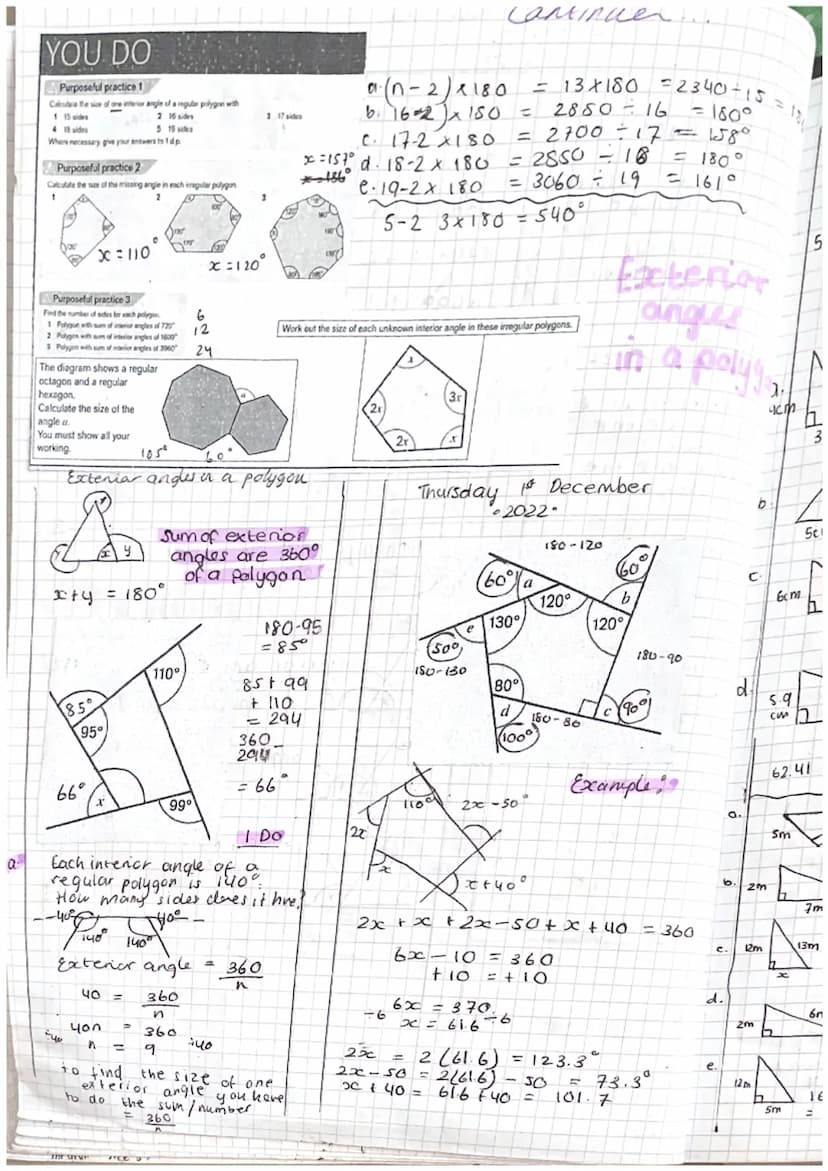 Continuer...
YOU DO
Purposeful practice 1
Calculate the size of one interior angle of a regular polygon with
1 15 sides 2 16 sides 3 17 sides
4 18 sides 5 19 sides
Where necessary, give your answers to 1 d.p.
a. (n - 2) x 180 = 13 x 180 = 2340 ÷ 15
b. 16-2) x 180 = 2850 ÷ 16 = 180°
c. 17-2 x 180 = 2700 ÷ 17 = 158°
d. 18-2 x 180 = 2850 ÷ 18 = 180°
e. 19-2 x 180 = 3060 ÷ 19 = 161°
5-2 3x180 = 540°
Purposeful practice 2
x = 157°
x = 156°
Calculate the size of the missing angle in each irregular polygon.
1 2 3
x = 110°
x = 120°
Exterior
angles
in a polyg
Purposeful practice 3
Find the number of sides for each polygon.
1 Polygon with sum of interior angles of 720° 6
2 Polygon with sum of interior angles of 1800° 12
3 Polygon with sum of interior angles of 3960° 24
Work out the size of each unknown interior angle in these irregular polygons.
The diagram shows a regular
octagon and a regular
hexagon.
Calculate the size of the
angle a.
You must show all your
working.
a
105° 60°
x
3x
x
2x
2x
Exterior angles in a polygon
x y
Sum of exterior
angles are 360°
of a polygon
x + y = 180°
110°
85°
95°
66°
x
99°
180-95
= 85°
85 + 99
+ 110
= 294
360 -
294
= 66°
I Do
a. Each interior angle of a
regular polygon is 140°.
How many sides does it hve?
40° 40°
140° 140°
Exterior angle = 360
n
40 = 360
n
÷40 40n = 360 ÷40
n = 9
to find the size of one
exterior angle you have
to do the sum/number
= 360
n
Thursday 1st December
2022
180-120
60° a 60°
120° b
e 130° 120°
50°
180-130
180-90
80°
d 180-80 c 90°
100°
Example:
110° 2x-50°
2x
x
x+40°
2x + x + 2x-50 + x + 40 = 360
6x - 10 = 360
+10 = +10
÷6 6x = 370
x = 61.6 ÷6
2x = 2(61.6) = 123.3°
2x-50 = 2(61.6) - 50 = 73.3°
x + 40 = 61.6 + 40 = 101.7
5
4cm
3
b.
5c
c.
6cm
d.
5.9
cm
62.41
a.
5m
b. 2m
7m
c. 12m 13m
x
d.
2m
e.
12m
5m